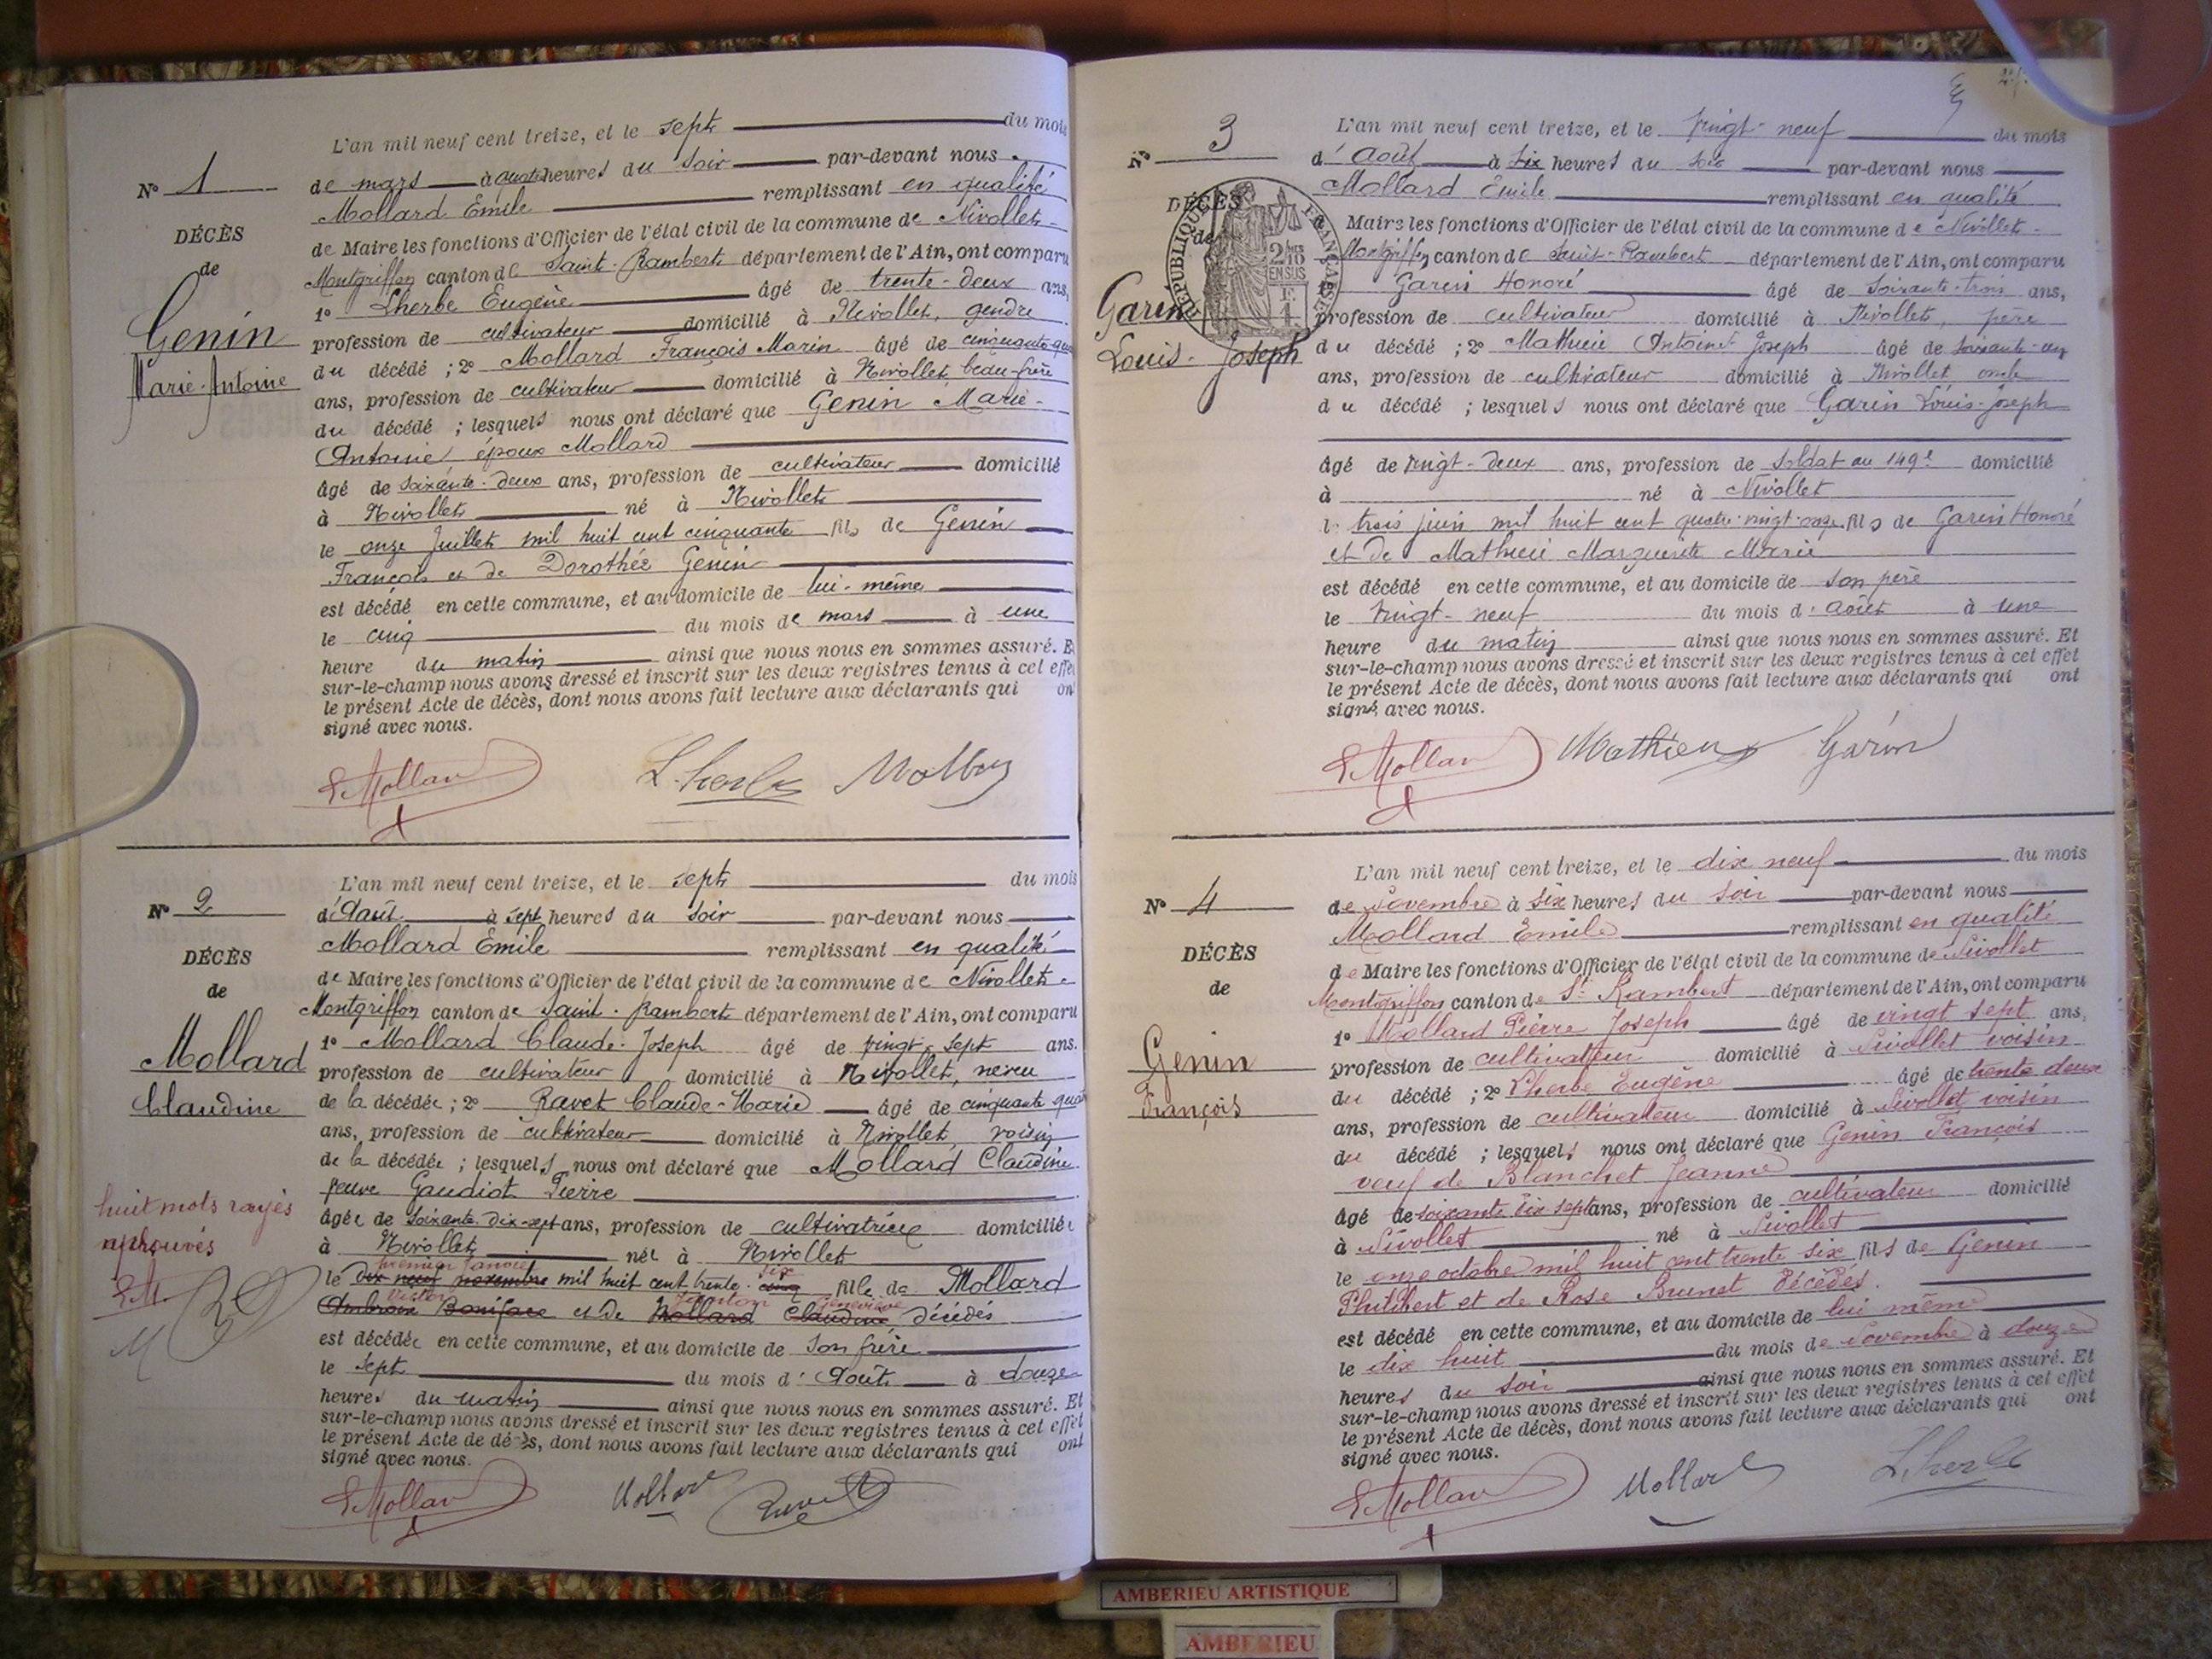 L'an mil neuf cent treize, et le sept du mois
de mars à quatre heures du soir par-devant nous
Mollard Emile remplissant en qualité
de Maire les fonctions d'Officier de l'état civil de la commune de Nivollet-
Montgriffon canton de Saint-Rambert département de l'Ain, ont comparu
1º Lherbe Eugène âgé de trente-deux ans,
profession de cultivateur domicilié à Nivollet, gendre
du décédé ; 2º Mollard François Marin âgé de cinquante-qua
ans, profession de cultivateur domicilié à Nivollet, beau-frère
du décédé ; lesquels nous ont déclaré que Genin Marie-
Antoine époux Mollard
âgé de soixante-deux ans, profession de cultivateur domicilié
à Nivollet né à Nivollet
le onze Juillet mil huit cent cinquante fils de Genin
François et de Dorothée Genin
est décédé en cette commune, et au domicile de lui-même
le cinq du mois de mars à une
heure du matin ainsi que nous nous en sommes assuré. Et
sur-le-champ nous avons dressé et inscrit sur les deux registres tenus à cet effet
le présent Acte de décès, dont nous avons fait lecture aux déclarants qui ont
signé avec nous.
Nº 1
DÉCÈS
de
Genin
Marie-Antoine
E Mollard Lherbe Mollard
L'an mil neuf cent treize, et le sept du mois
d'Août à sept heures du soir par-devant nous
Mollard Emile remplissant en qualité
de Maire les fonctions d'Officier de l'état civil de la commune de Nivollet-
Montgriffon canton de Saint-Rambert département de l'Ain, ont comparu
1º Mollard Claude-Joseph âgé de vingt-sept ans.
profession de cultivateur domicilié à Nivollet, neveu
de la décédée ; 2º Ravet Claude-Marie âgé de cinquante qua
ans, profession de cultivateur domicilié à Nivollet, voisin
de la décédée ; lesquels nous ont déclaré que Mollard Claudine
veuve Gaudiot Pierre
âgée de soixante dix-sept ans, profession de cultivatrice domiciliée
à Nivollet née à Nivollet
premier Janvier six
le dix neuf novembre mil huit cent trente-cinq fille de Mollard
Victor Geneviève
Ambroise Boniface et de Mollard Claudine décédés
est décédée en cette commune, et au domicile de son frère
le sept du mois d'Août à douze
heures du matin ainsi que nous nous en sommes assuré. Et
sur-le-champ nous avons dressé et inscrit sur les deux registres tenus à cet effet
le présent Acte de décès, dont nous avons fait lecture aux déclarants qui ont
signé avec nous.
Nº 2
DÉCÈS
de
Mollard
Claudine
huit mots rayés
aprouvés
E M.
M
E Mollard Mollard Ravet
L'an mil neuf cent treize, et le vingt-neuf du mois
d'Août à six heures du soir par-devant nous
Mollard Emile remplissant en qualité
Maire les fonctions d'Officier de l'état civil de la commune de Nivollet-
Montgriffon canton de Saint-Rambert département de l'Ain, ont comparu
Garin Honoré âgé de Soixante-trois ans,
profession de cultivateur domicilié à Nivollet, père
du décédé ; 2º Mathieu Antoine Joseph âgé de soixante-un
ans, profession de cultivateur domicilié à Nivollet oncle
du décédé ; lesquels nous ont déclaré que Garin Louis-Joseph
âgé de vingt-deux ans, profession de soldat au 149e domicilié
à né à Nivollet
le trois juin mil huit cent quatre-vingt-onze fils de Garin Honoré
et de Mathieu Marguerite Marie
est décédé en cette commune, et au domicile de son père
le vingt-neuf du mois d'août à une
heure du matin ainsi que nous nous en sommes assuré. Et
sur-le-champ nous avons dressé et inscrit sur les deux registres tenus à cet effet
le présent Acte de décès, dont nous avons fait lecture aux déclarants qui ont
signé avec nous.
Nº 3
DÉCÈS
de
Garin
Louis-Joseph
RÉPUBLIQUE FRANÇAISE
2/10
EN SUS
E Mollard Mathieu Garin
L'an mil neuf cent treize, et le dix neuf du mois
de Novembre à six heures du soir par-devant nous
Mollard Emile remplissant en qualité
de Maire les fonctions d'Officier de l'état civil de la commune de Nivollet
Montgriffon canton de St Rambert département de l'Ain, ont comparu
1º Mollard Pierre Joseph âgé de vingt sept ans,
profession de cultivateur domicilié à Nivollet voisin
du décédé ; 2º Lherbe Eugène âgé de trente deux
ans, profession de cultivateur domicilié à Nivollet voisin
du décédé ; lesquels nous ont déclaré que Genin François
veuf de Blanchet Jeanne
âgé de soixante dix sept ans, profession de cultivateur domicilié
à Nivollet né à Nivollet
le onze octobre mil huit cent trente six fils de Genin
Philibert et de Rose Brunet décédés.
est décédé en cette commune, et au domicile de lui même
le dix huit du mois de Novembre à douze
heures du soir ainsi que nous nous en sommes assuré. Et
sur-le-champ nous avons dressé et inscrit sur les deux registres tenus à cet effet
le présent Acte de décès, dont nous avons fait lecture aux déclarants qui ont
signé avec nous.
Nº 4
DÉCÈS
de
Genin
François
E Mollard Mollard Lherbe
AMBERIEU ARTISTIQUE
AMBERIEU